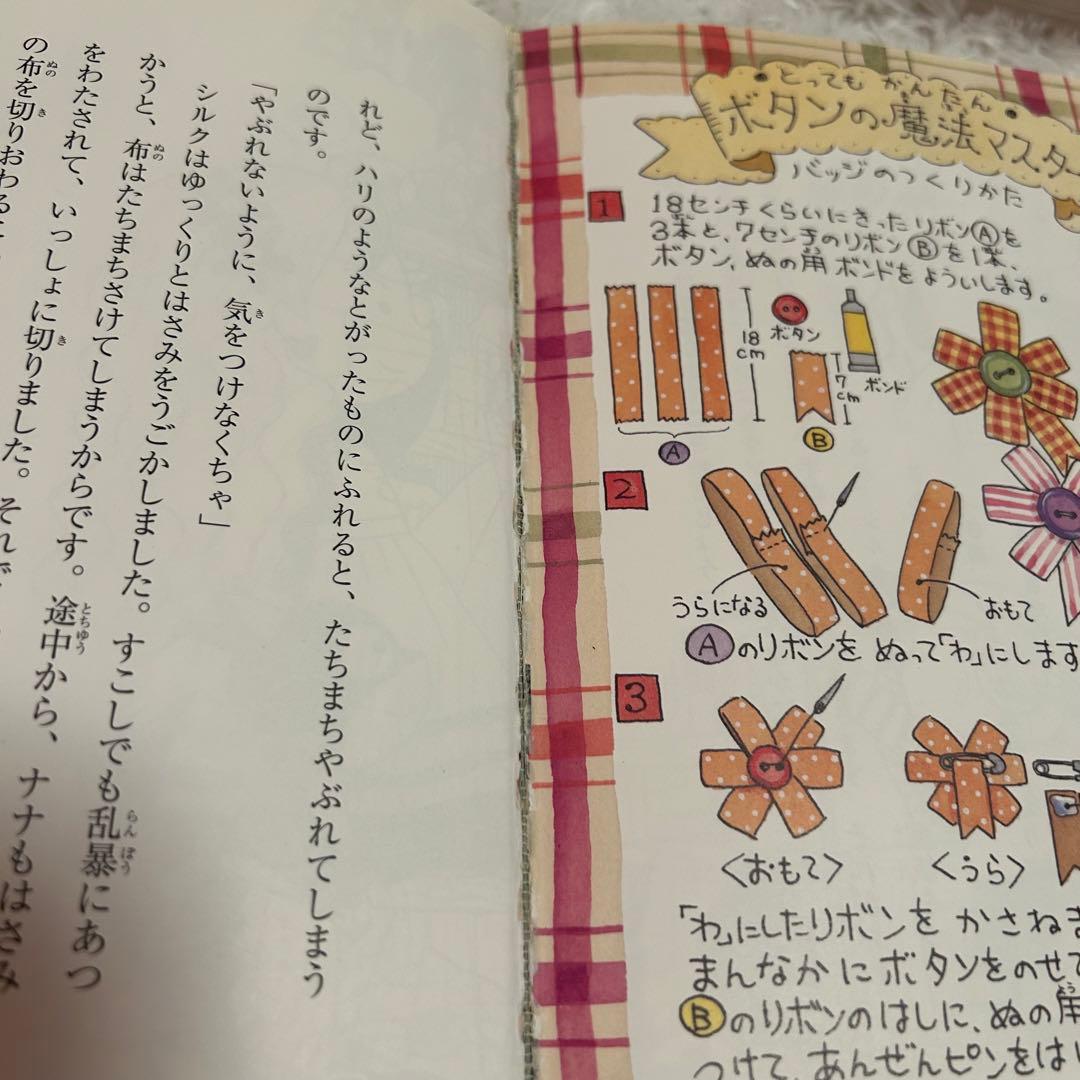 れど、ハリのようなとがったものにふれると、たちまちやぶれてしまう
のです。
「やぶれないように、気をつけなくちゃ」
シルクはゆっくりとはさみをうごかしました。すこしでも乱暴にあつ
かうと、布はたちまちさけてしまうからです。途中から、ナナもはさみ
をわたされて、いっしょに切りました。それで
の布を切りおわるに
とっても かんたん
ボタンの魔法マスター
バッジのつくりかた
1
18センチくらいにきったリボンAを
3本と、7センチのリボンBを1本、
ボタン、ぬの用ボンドをよういします。
18cm
ボタン
7cm
ボンド
A
B
2
うらになる
おもて
Aのリボンを ぬって「わ」にします
3
〈おもて〉
〈うら〉
「わ」にしたリボンを かさねま
まんなかにボタンをのせて
Bのリボンのはしに、ぬの用
つけて、あんぜんピンをは